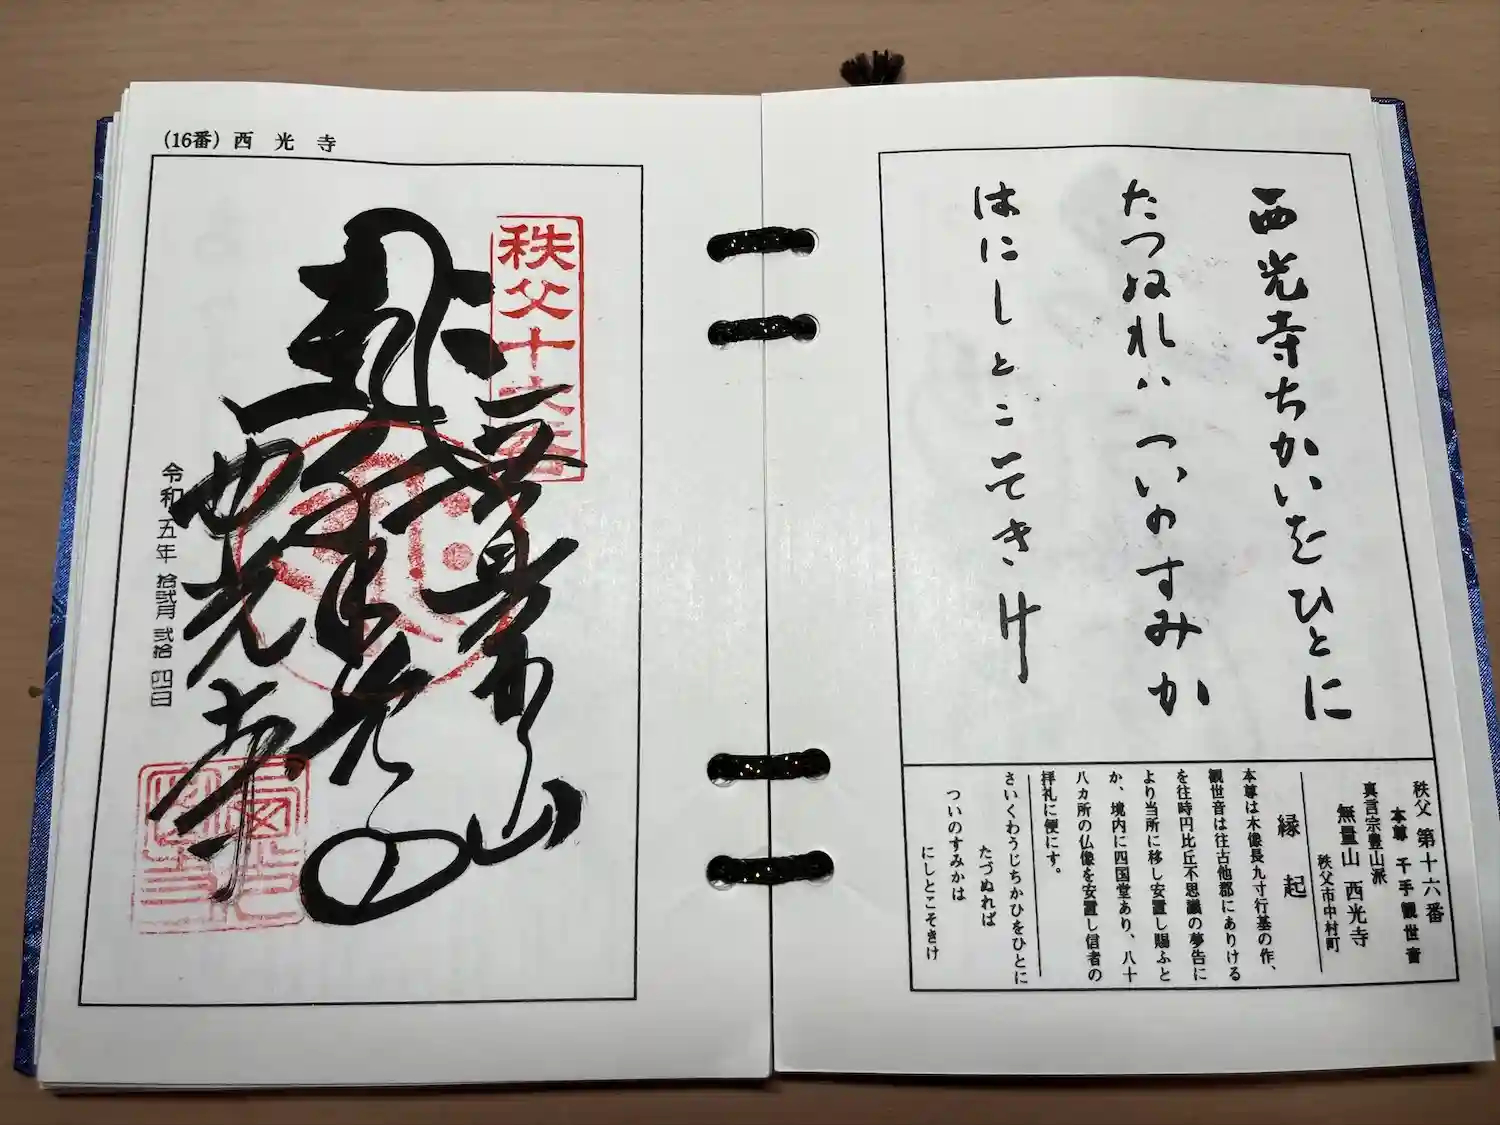 西光寺ちかいをひとに
たつぬれハついのすみか
はにしとこそきけ
秩父 第十六番
本尊 千手観世音
真言宗豊山派
無量山 西光寺
秩父市中村町
縁起
本尊は木像長九寸行基の作、
観世音は往古他郡にありける
を往時円比丘不思議の夢告に
より当所に移し安置し賜ふと
か、境内に四国堂あり、八十
八カ所の仏像を安置し信者の
拝礼に便にす。
さいくわうじちかひをひとに
たづぬれば
ついのすみかは
にしとこそきけ
(16番) 西光寺
秩父十六番
無量山
西光寺
令和五年 拾弐月 弐拾四日